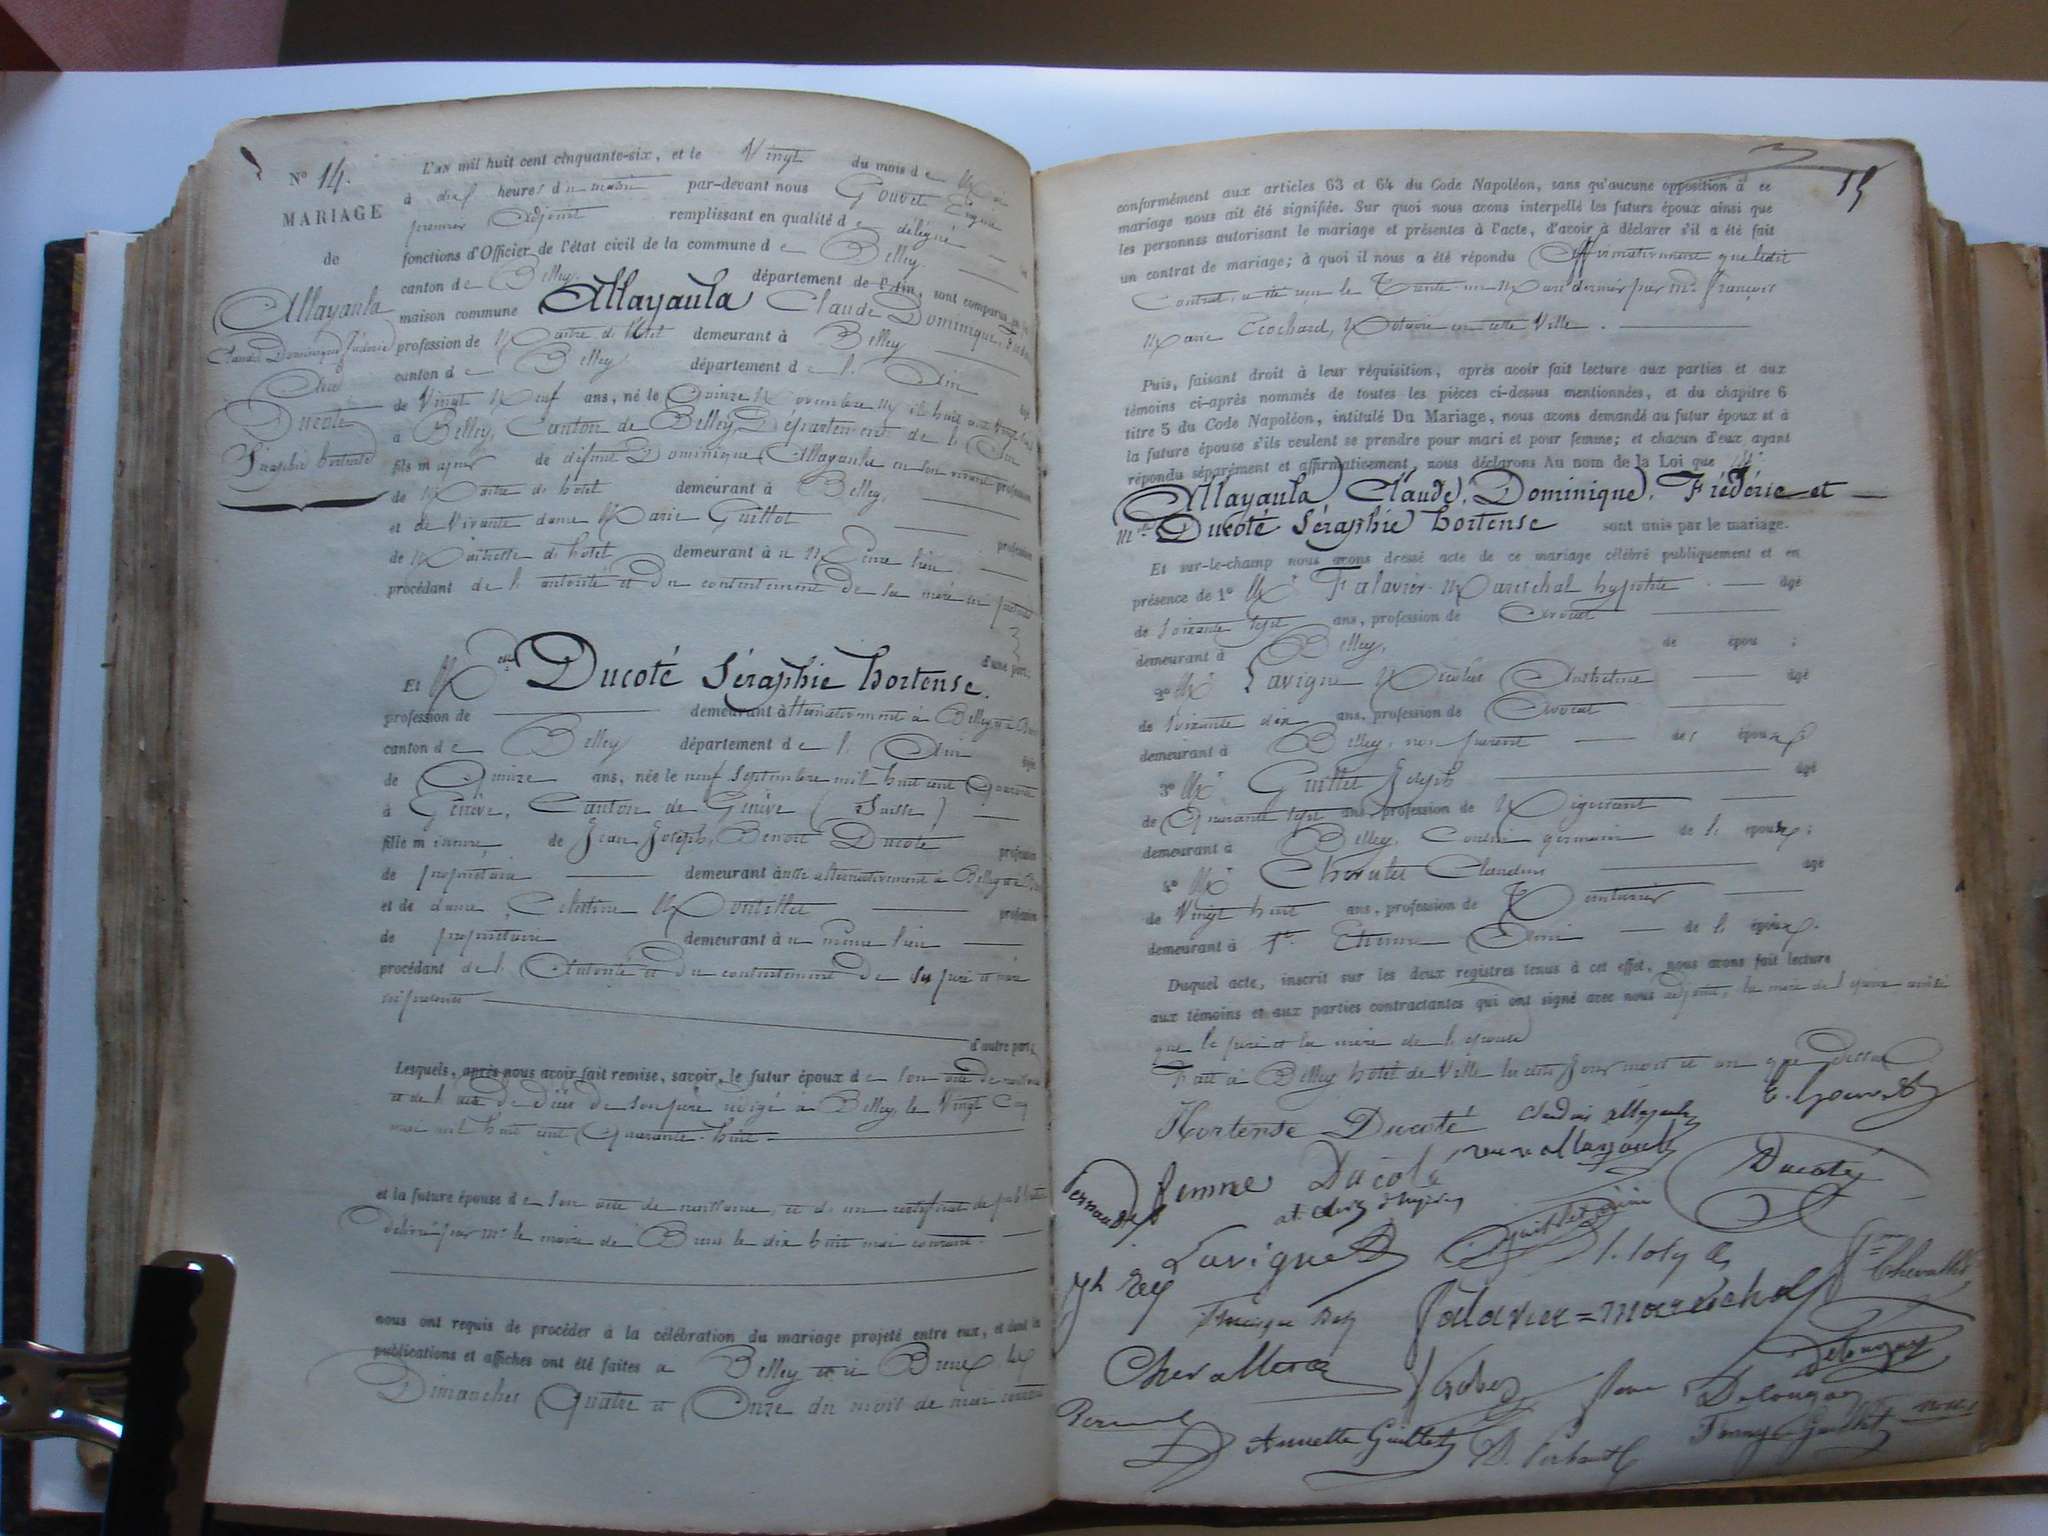 N° 14.
MARIAGE
de
Allayaula
Claude Dominique Frédéric
Et
Ducoté
Séraphie hortense
L'an mil huit cent cinquante-six, et le Vingt du mois de Mai
à dix heures du matin par-devant nous Gouvet Eugène
premier Adjoint remplissant en qualité de délégué les
fonctions d'Officier de l'état civil de la commune de Belley
canton de Belley département de l'Ain, sont comparus en la
maison commune Allayaula Claude Dominique, Frédéric
profession de Maître d'hôtel demeurant à Belley
canton de Belley département de l'Ain âgé
de Vingt Neuf ans, né le Quinze Novembre Mil huit cent Vingt
à Belley, Canton de Belley Département de l'Ain
fils majeur de défunt Dominique Allayaula en son vivant profession
de Maître d'hôtel demeurant à Belley,
et de Vivante dame Marie Guillot profession
de Maitresse d'hôtel demeurant à u Même lieu
procédant de l'autorité et du consentement de sa mère ici présente
d'une part.
Et Melle Ducoté Séraphie hortense.
profession de demeurant alternativement à Belley et à
canton de Belley département de l'Ain âgée
de Quinze ans, née le neuf Septembre mil huit cent Quarante
à Genève, Canton de Genève (Suisse)
fille mineure, de Jean Joseph, Benoit Ducoté profession
de propriétaire demeurant alternativement à Belley et à
et de dame Célestine Montillet profession
de propriétaire demeurant à u même lieu
procédant de l'Autorité et du consentement de ses père et mère
ici présents
d'autre part;
Lesquels, après nous avoir fait remise, savoir, le futur époux de son acte de naissance
et de l'acte de décès de son père rédigé à Belley, le Vingt Cinq
mai mil huit cent Quarante-huit
et la future épouse de son acte de naissance, et d'un certificat de publication
délivré par Mr le maire de Brens le dix huit mai courant.
nous ont requis de procéder à la célébration du mariage projeté entre eux, et dont les
publications et affiches ont été faites à Belley et à Brens les
Dimanches Quatre et Onze du mois de mai courant
15
conformément aux articles 63 et 64 du Code Napoléon, sans qu'aucune opposition à ce
mariage nous ait été signifiée. Sur quoi nous avons interpellé les futurs époux ainsi que
les personnes autorisant le mariage et présentes à l'acte, d'avoir à déclarer s'il a été fait
un contrat de mariage; à quoi il nous a été répondu Affirmativement que ledit
Contrat, a été reçu le Trente un Mars dernier par Me François
Marie Ecochard, Notaire en cette Ville.
Puis, faisant droit à leur réquisition, après avoir fait lecture aux parties et aux
témoins ci-après nommés de toutes les pièces ci-dessus mentionnées, et du chapitre 6
titre 5 du Code Napoléon, intitulé Du Mariage, nous avons demandé au futur époux et à
la future épouse s'ils veulent se prendre pour mari et pour femme; et chacun d'eux ayant
répondu séparément et affirmativement, nous déclarons Au nom de la Loi que Mr
Allayaula, Claude, Dominique, Frédéric et
Mlle Ducoté Séraphie hortense sont unis par le mariage.
Et sur-le-champ nous avons dressé acte de ce mariage célébré publiquement et en
présence de 1° Mr Falavier-Mareschal hypolite âgé
de Soixante Sept ans, profession de Avocat
demeurant à Belley, de épou ;
2° Mr Lavigne Nicolas Anthelme âgé
de Soixante dix ans, profession de Avocat
demeurant à Belley, non parent des époux;
3° Mr Guillet Joseph âgé
de Quarante Sept ans, profession de Négociant
demeurant à Belley, Cousin germain de l'époux;
4° Mr Claudius âgé
de Vingt huit ans, profession de Teinturier
demeurant à St. Etienne de l'époux.
Duquel acte, inscrit sur les deux registres tenus à cet effet, nous avons fait lecture
aux témoins et aux parties contractantes qui ont signé avec nous adjoint, la mère de l'époux, ainsi
que le père et la mère de l'épouse
Fait à Belley hôtel de Ville les dits Jour mois et an que dessus
Hortense Ducoté Allayaula E. Gouvet
femme Ducoté veuve allayaula Ducoté
Lavigne Guillet
falavier=mareschal Chevallier
Chevallier Delougne
Annette Guillet Fanny Guillet